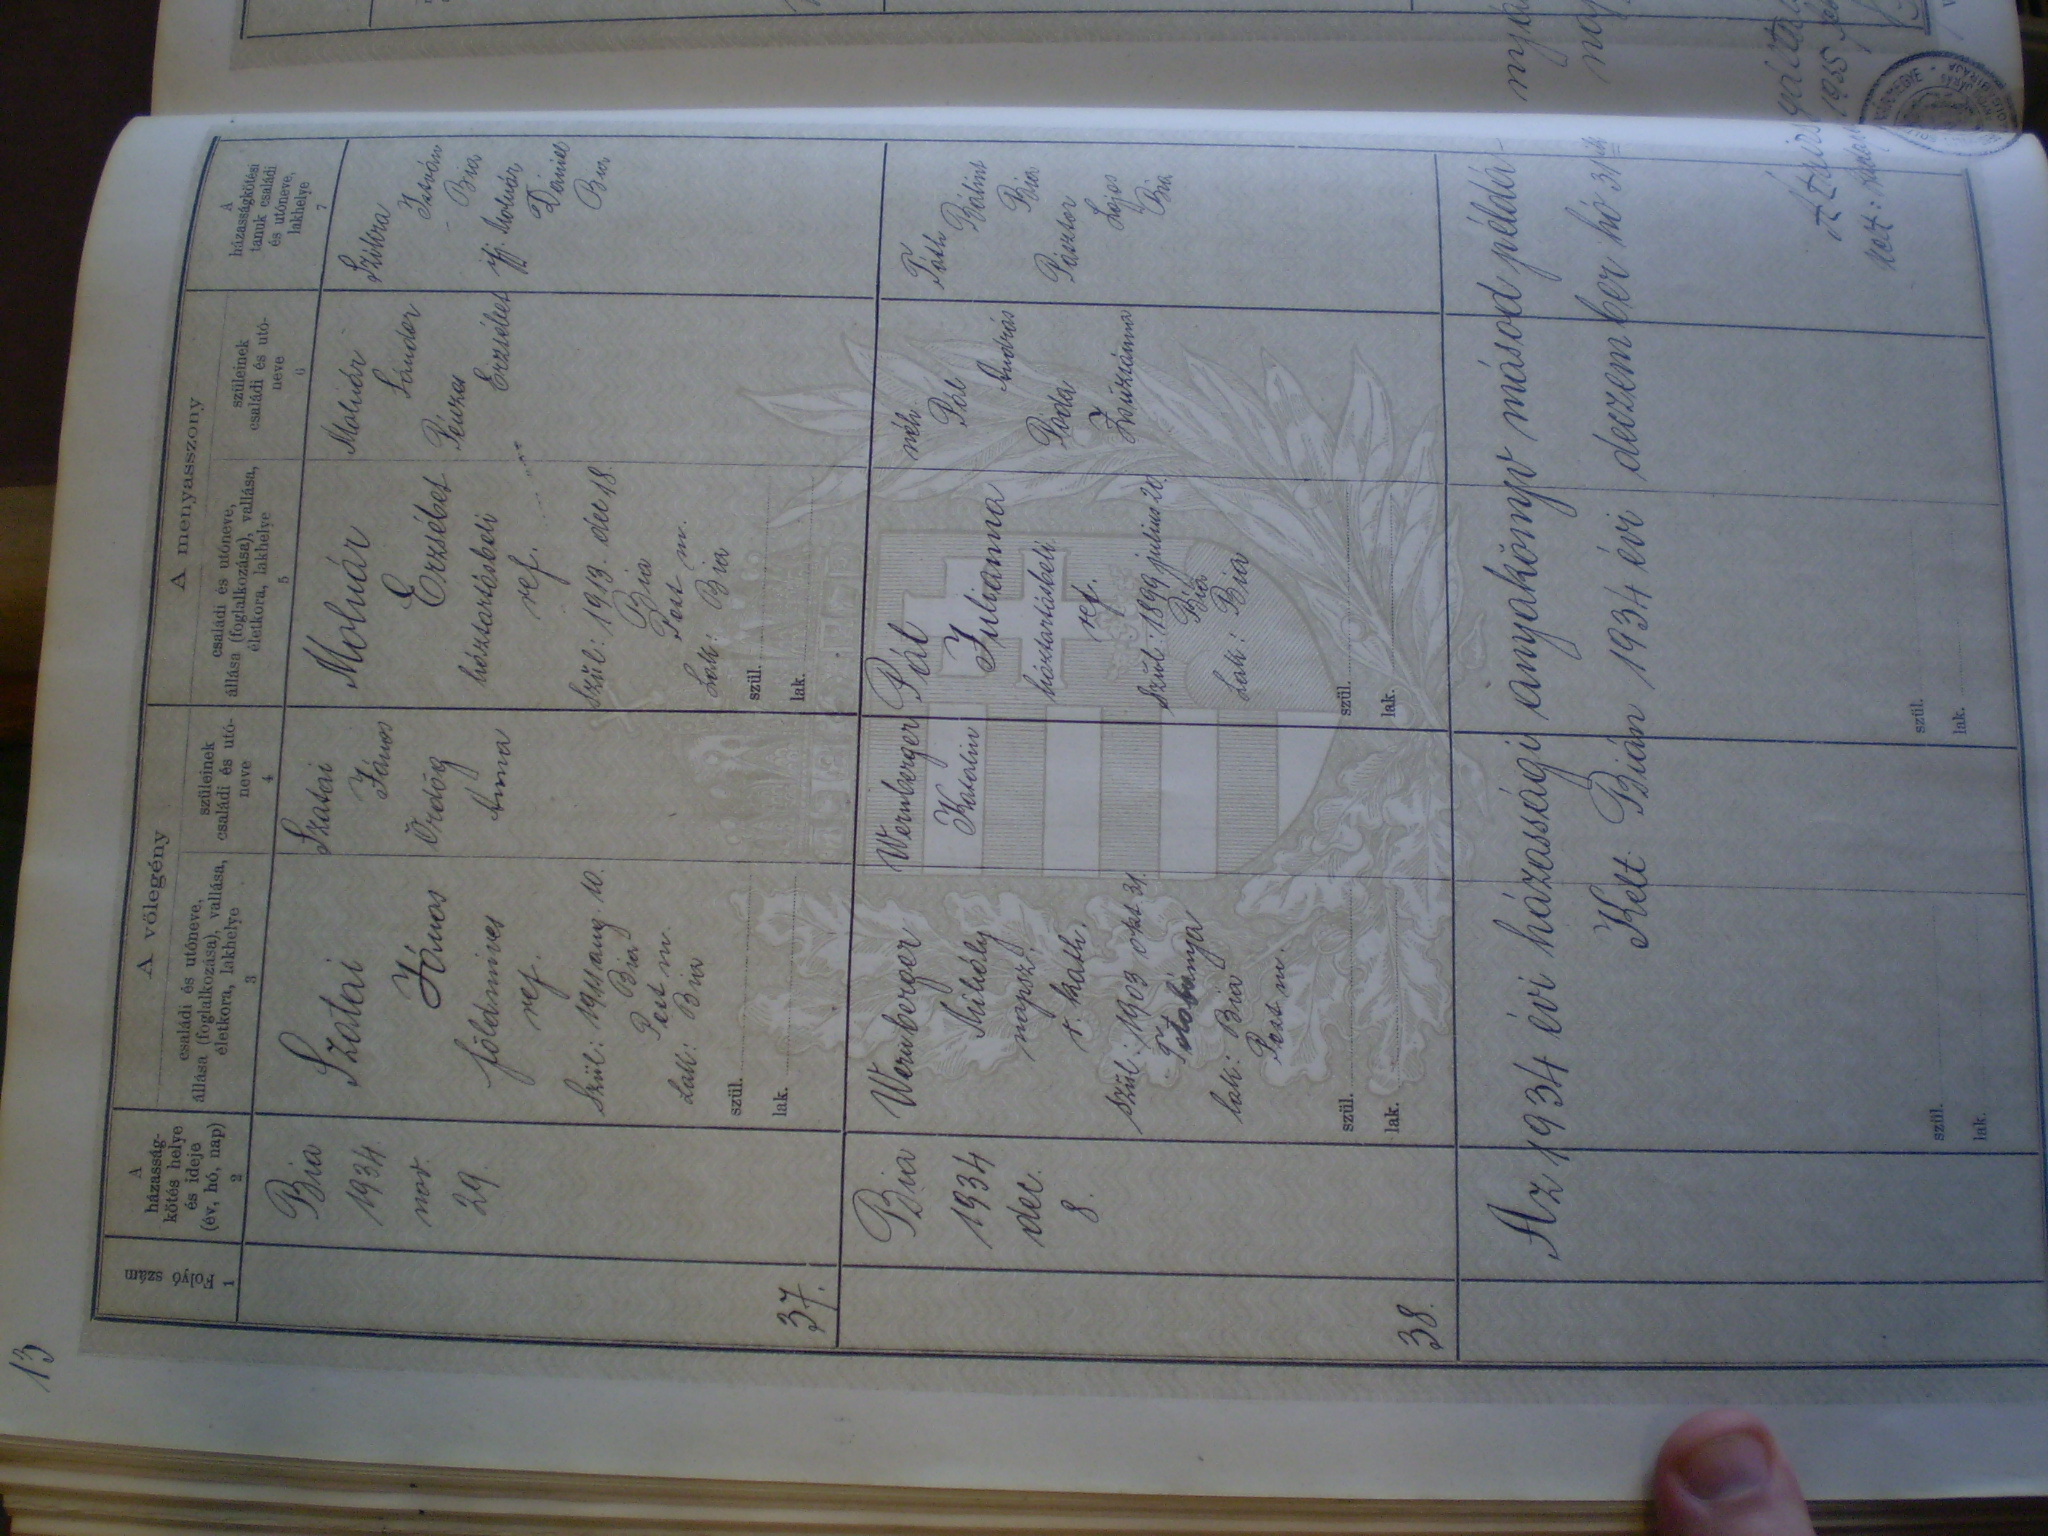 13
Folyó szám
1
A
házasság-
kötés helye
és ideje
(év, hó, nap)
2
A vőlegény
családi és utóneve,
állása (foglalkozása), vallása,
életkora, lakhelye
3
szüleinek
családi és utó-
neve
4
A menyasszony
családi és utóneve,
állása (foglalkozása), vallása,
életkora, lakhelye
5
szüleinek
családi és utó-
neve
6
A
házasságkötési
tanuk családi
és utóneve,
lakhelye
7
37.
Bia
1934
nov.
29.
Szatai
János
földmíves
ref.
Szül: 1911 aug. 10.
Bia
Pest m.
Lak: Bia
szül.
lak.
Szatai
János
Ördög
Anna
Molnár
Erzsébet
háztartásbeli
ref.
Szül: 1913. dec 18.
Bia
Pest m.
Lak: Bia
szül.
lak.
Molnár
Sándor
Pénzes
Erzsébet
Szőkra
István
Bia
ifj. Molnár
Dániel
Bia
38.
Bia
1934
dec.
8.
Wernberger
Mihály
napsz.
r. kath.
Szül: 1903 okt 31.
lak: Bia
Pest m.
szül.
lak.
Wernberger
Katalin
Pál
Julianna
háztartásbeli
ref.
Szül: 1899 julius 20.
Bia
Lak: Bia
szül.
lak.
néh.
Pál
András
Póda
Zsuzsánna
Tóth
Bálint
Bia
Pásztor
Lajos
Bia
Az 1934 évi házassági anyakönyv másod példá-
Kelt Bián 1934 évi deczember hó 31
szül.
lak.
szül.
lak.